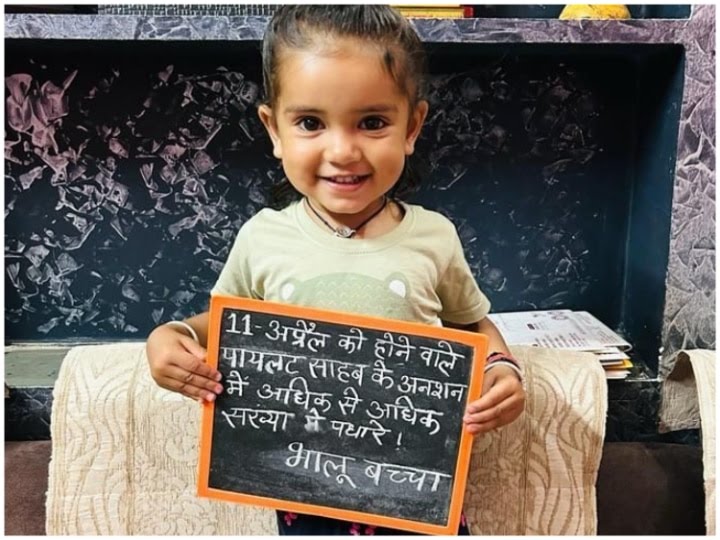 11-अप्रैल को होने वाले
पायलट साहब के अनशन
में अधिक से अधिक
संख्या में पधारे!
भालू बच्चा